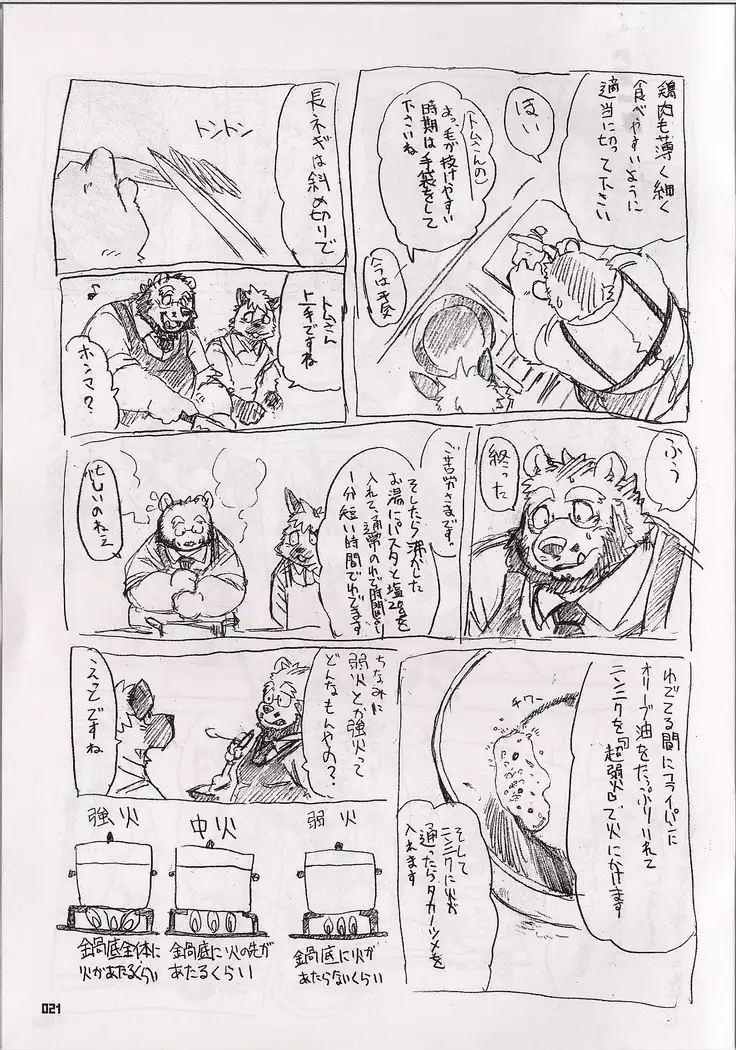 鶏肉も薄く細く
食べやすいように
適当に切って下さい
はい
(トムさんの)
あっ、毛が抜けやすい
時期は手袋をして
下さいね
今は平気
長ネギは斜め切りで
トントン
トムさん
上手ですね
ホンマ?
ふう
終った
ご苦労さまです。
そしたら沸かした
お湯にパスタと塩20gを
入れて、通常のゆで時間より
1分短い時間でゆでます
忙しいのねぇ
ゆでてる間にフライパンに
オリーブ油をたっぷりいれて
ニンニクを『超弱火』で火にかけます
チワー
そして
ニンニクに火が
通ったらタカノツメを
入れます
ちなみに
弱火とか強火って
どんなもんやの?
えっとですね
強火
鍋底全体に
火があたるくらい
中火
鍋底に火の先が
あたるくらい
弱火
鍋底に火が
あたらないくらい
021